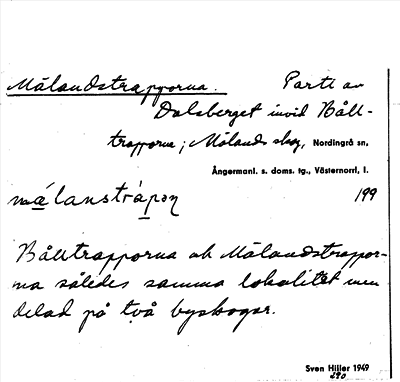 Målandstrapporna. Parti av
Dalsberget invid Båll-
trapporna; Målands skog, Nordingrå sn,
Ångermanl. s. doms. tg., Västernorrl, l.
málanstrápən 199
Bålltrapporna ock Målandstrappor-
na således samma lokalitet men
delad på två byskogar.
Sven Hiller 1949